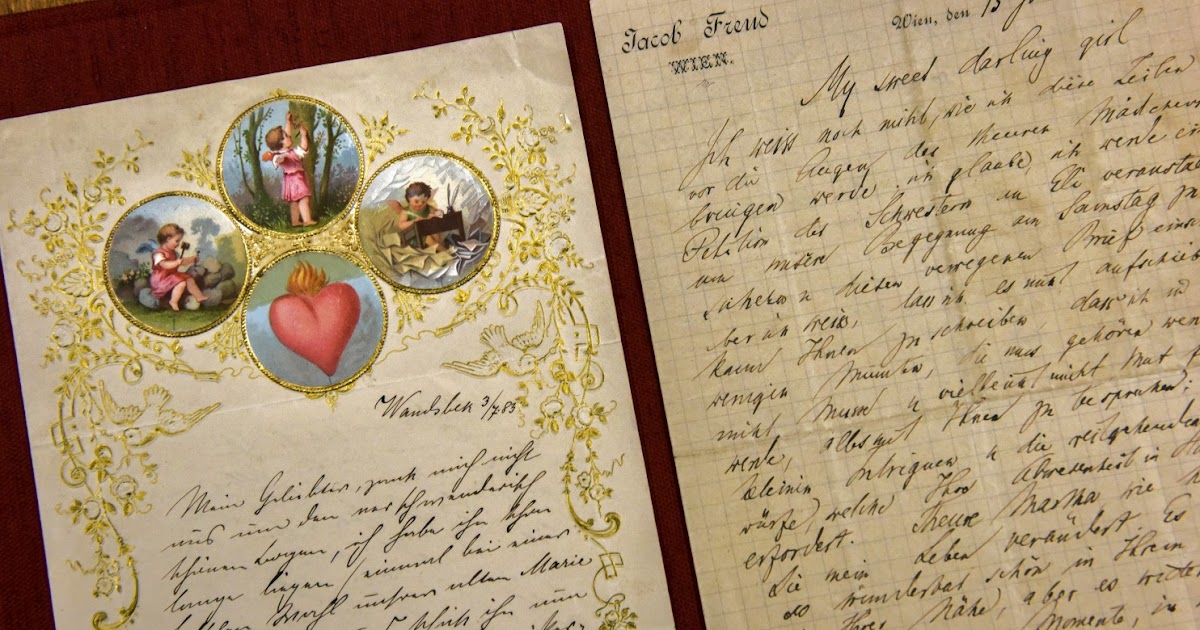 Wandsbek 3/7.83
Mein Geliebter, zank mich nicht
aus um den verschwenderisch
schönen Bogen, ich habe ihn schon
lange liegen, einmal bei einer
Wahl unsrer alten Marie
ihn nun
Jacob Freud
WIEN.
Wien, den 15
My sweet darling girl
Ich weiss noch nicht, wie ich diese Zeilen
vor die Augen des theuren Mädchens
bringen werde, ich glaube, ich werde ein
Petition der Schwestern an Eli veranstal
um unsere Begegnung am Samstag zu
sichern u diesen verwegenen Brief einzu
ber ich weiss, dass ich es nicht aufschieb
kann Ihnen zu schreiben, dass ich in
wenigen Minuten, die uns gehören werd
nicht Musse u vielleicht nicht Mut
werde, alles mit Ihnen zu besprechen,
kleinen Intriguen u die weitgehenden
würfe, welche Ihre Abwesenheit in
erfordert. Theure Martha wie
Sie mein Leben verändert. Es
so wunderbar schön in Ihrem
Ihrer Nähe, aber es
Momente, in